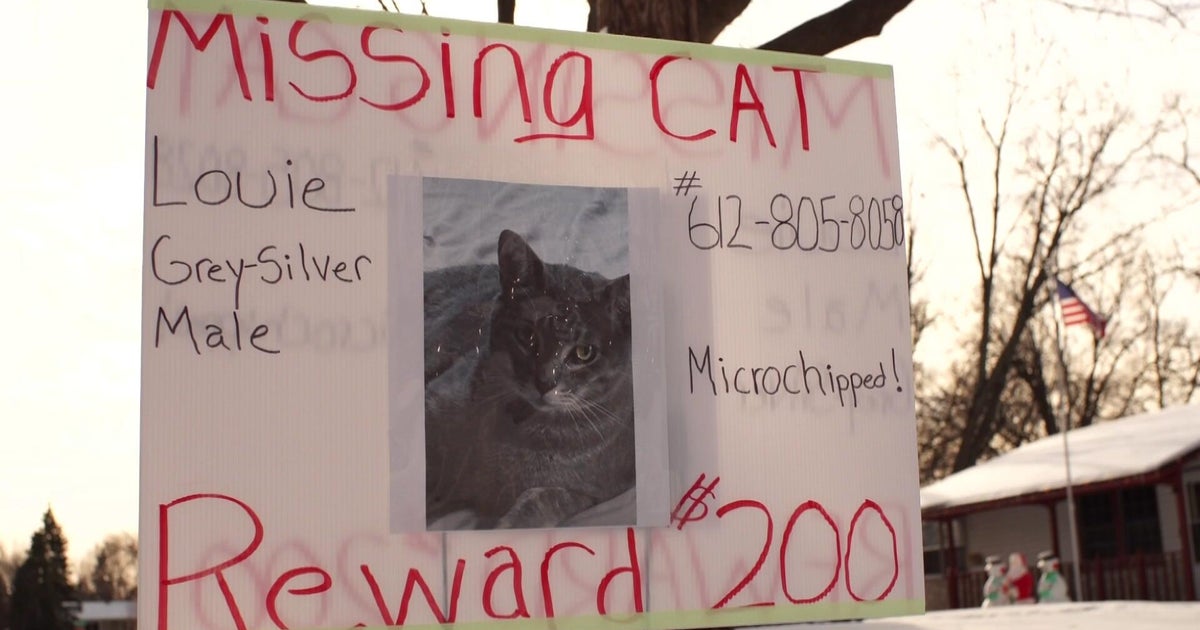 Missing CAT
Louie
Grey-Silver
Male
# 612-805-8058
Microchipped!
Reward $200